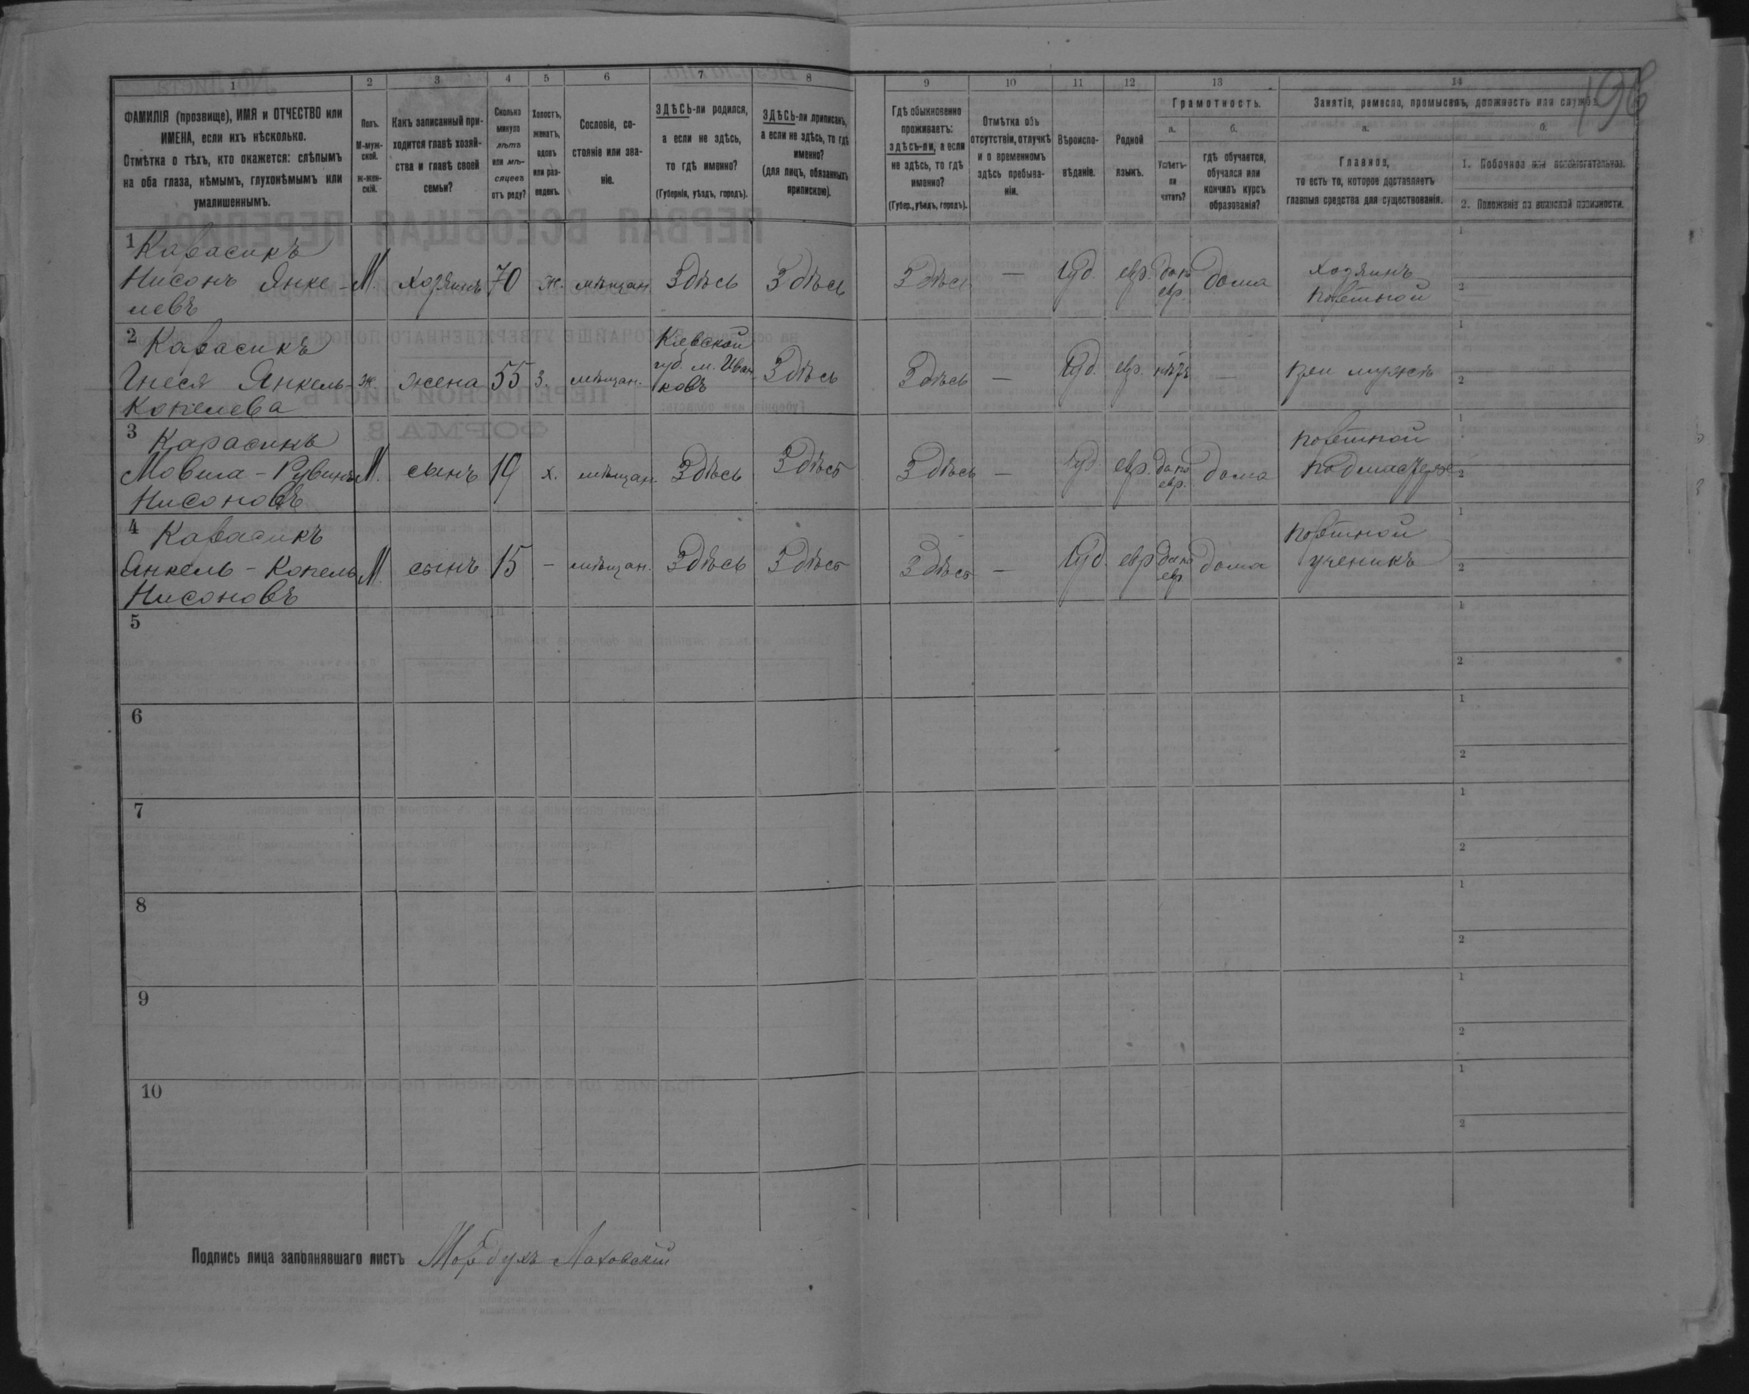 196
1 2 3 4 5 6 7 8 9 10 11 12 13 14
ФАМИЛІЯ (прозвище), ИМЯ и ОТЧЕСТВО или
ИМЕНА, если ихъ нѣсколько.
Отмѣтка о тѣхъ, кто окажется: слѣпымъ
на оба глаза, нѣмымъ, глухонѣмымъ или
умалишеннымъ.
Полъ.
М-муж-
ской.
Ж-жен-
скій.
Какъ записанный при-
ходится главѣ хозяй-
ства и главѣ своей
семьи?
Сколько
минуло
лѣтъ
или мѣ-
сяцевъ
отъ роду?
Холостъ,
женатъ,
вдовъ
или раз-
веденъ.
Сословіе, со-
стояніе или зва-
ніе.
ЗДѢСЬ-ли родился,
а если не здѣсь,
то гдѣ именно?
(Губернія, уѣздъ, городъ).
ЗДѢСЬ-ли приписанъ,
а если не здѣсь, то гдѣ
именно?
(для лицъ, обязанныхъ
припискою).
Гдѣ обыкновенно
проживаетъ:
здѣсь-ли, а если
не здѣсь, то гдѣ
именно?
(Губер., уѣздъ, городъ).
Отмѣтка объ
отсутствіи, отлучкѣ
и о временномъ
здѣсь пребыва-
ніи.
Вѣроиспо-
вѣданіе.
Родной
языкъ.
Грамотность.
а.
Умѣетъ-
ли
читать?
б.
гдѣ обучается,
обучался или
кончилъ курсъ
образованія?
Занятіе, ремесло, промыселъ, должность или служба.
а.
Главное,
то есть то, которое доставляетъ
главныя средства для существованія.
б.
1. Побочное или вспомогательное.
2. Положеніе по воинской повинности.
1 Карасикъ
Нисонъ Янке-
левъ
М. хозяинъ 70 ж. мѣщан. Здѣсь Здѣсь Здѣсь — Іуд. евр. да по евр. дома
хозяинъ
портной
2 Карасикъ
Гнеся Янкель-
Копелева
ж. жена 55 з. мѣщан.
Кіевской
губ. м. Иван
ковъ
Здѣсь Здѣсь — Іуд. евр. нѣтъ — при мужѣ
3 Карасикъ
Мовша - Рувинъ
Нисоновъ
М. сынъ 19 х. мѣщан. Здѣсь Здѣсь Здѣсь — Іуд. евр. да по евр. дома
портной
подмастерье
4 Карасикъ
Янкель - Копель
Нисоновъ
М. сынъ 15 — мѣщан. Здѣсь Здѣсь Здѣсь — Іуд. евр. да по евр. дома
портной
ученикъ
5
6
7
8
9
10
Подпись лица заполнявшаго листъ Мордухъ Лаховскій